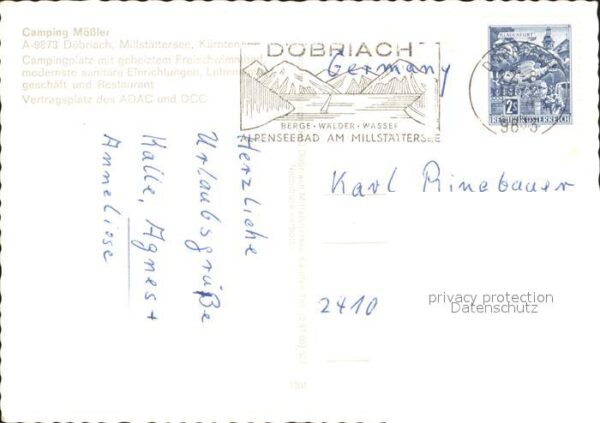 Camping Mößler
A-9873 Döbriach, Millstättersee, Kärnten
Campingplatz mit geheiztem Freischwimm
modernste sanitäre Einrichtungen, Lebensm
geschäft und Restaurant
Vertragsplatz des ADAC und DCC
DÖBRIACH
BERGE · WÄLDER · WASSER
ALPENSEEBAD AM MILLSTÄTTERSEE
Germany
KLAGENFURT
2S
REPUBLIK ÖSTERREICH
Herzliche
Urlaubsgrüße
Kalle, Agnes +
Anneliese
Karl Rinebauer
2410
privacy protection
Datenschutz